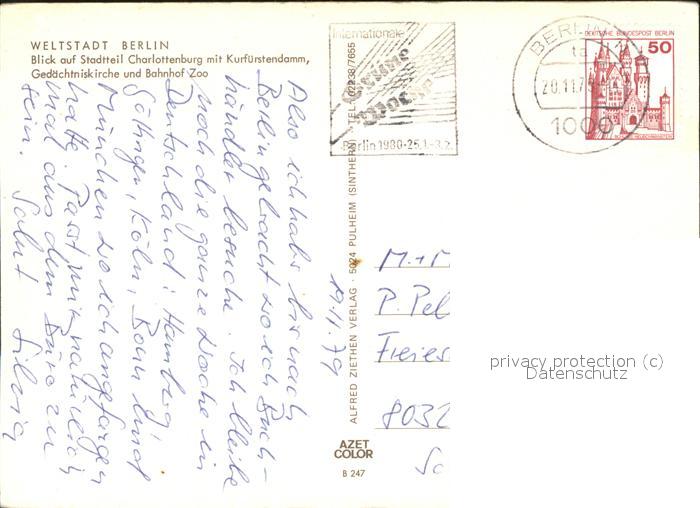 WELTSTADT BERLIN
Blick auf Stadtteil Charlottenburg mit Kurfürstendamm,
Gedächtniskirche und Bahnhof Zoo
Also ich habs bis nach
Berlin gebracht wo ich Buch-
händler besuche. Ich bleibe
noch die ganze Woche in
Deutschland: Hamburg,
Göttingen, Köln, Bonn und
München wo ich angefangen
hatte. Passt mir natürlich
mal aus dem Büro zu
sein. Salut Silvia
19.11.79
ALFRED ZIETHEN VERLAG · 5024 PULHEIM (SINTHERN) · TEL. 02238/7655
AZET
COLOR
B 247
Internationale
Grüne
Woche
Berlin 1980·25.1.-3.2.
BERLIN
20.11.7
1000
DEUTSCHE BUNDESPOST BERLIN
50
M.+M
P. Pel
Freies
8032
privacy protection (c)
Datenschutz